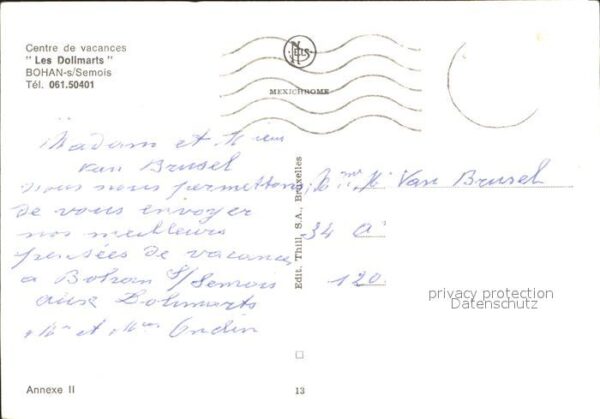 Centre de vacances
" Les Dollmarts "
BOHAN-s/Semois
Tél. 061.50401
NELS
MEXICHROME
Madam et Mieur
Van Brusel
nous nous permettons
de vous envoyer
nos meilleurs
pensées de vacances
a Bohan S/Semois
aux Dohmarts
Mm et Mieur
Edit. Thill, S.A., Bruxelles
Van Brusel
34 a
120
privacy protection
Datenschutz
Annexe II
13